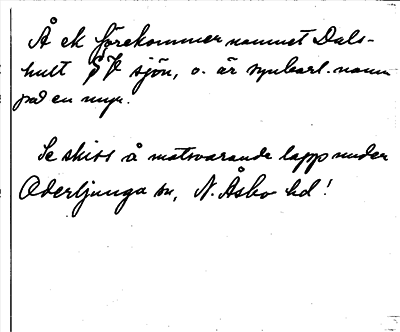 Å ek förekommer namnet Dals-
hult S V sjön, o. är synbarl. namn
på en myr.
Se skiss å motsvarande lapp under
Oderljunga sn, N. Åsbo hd!